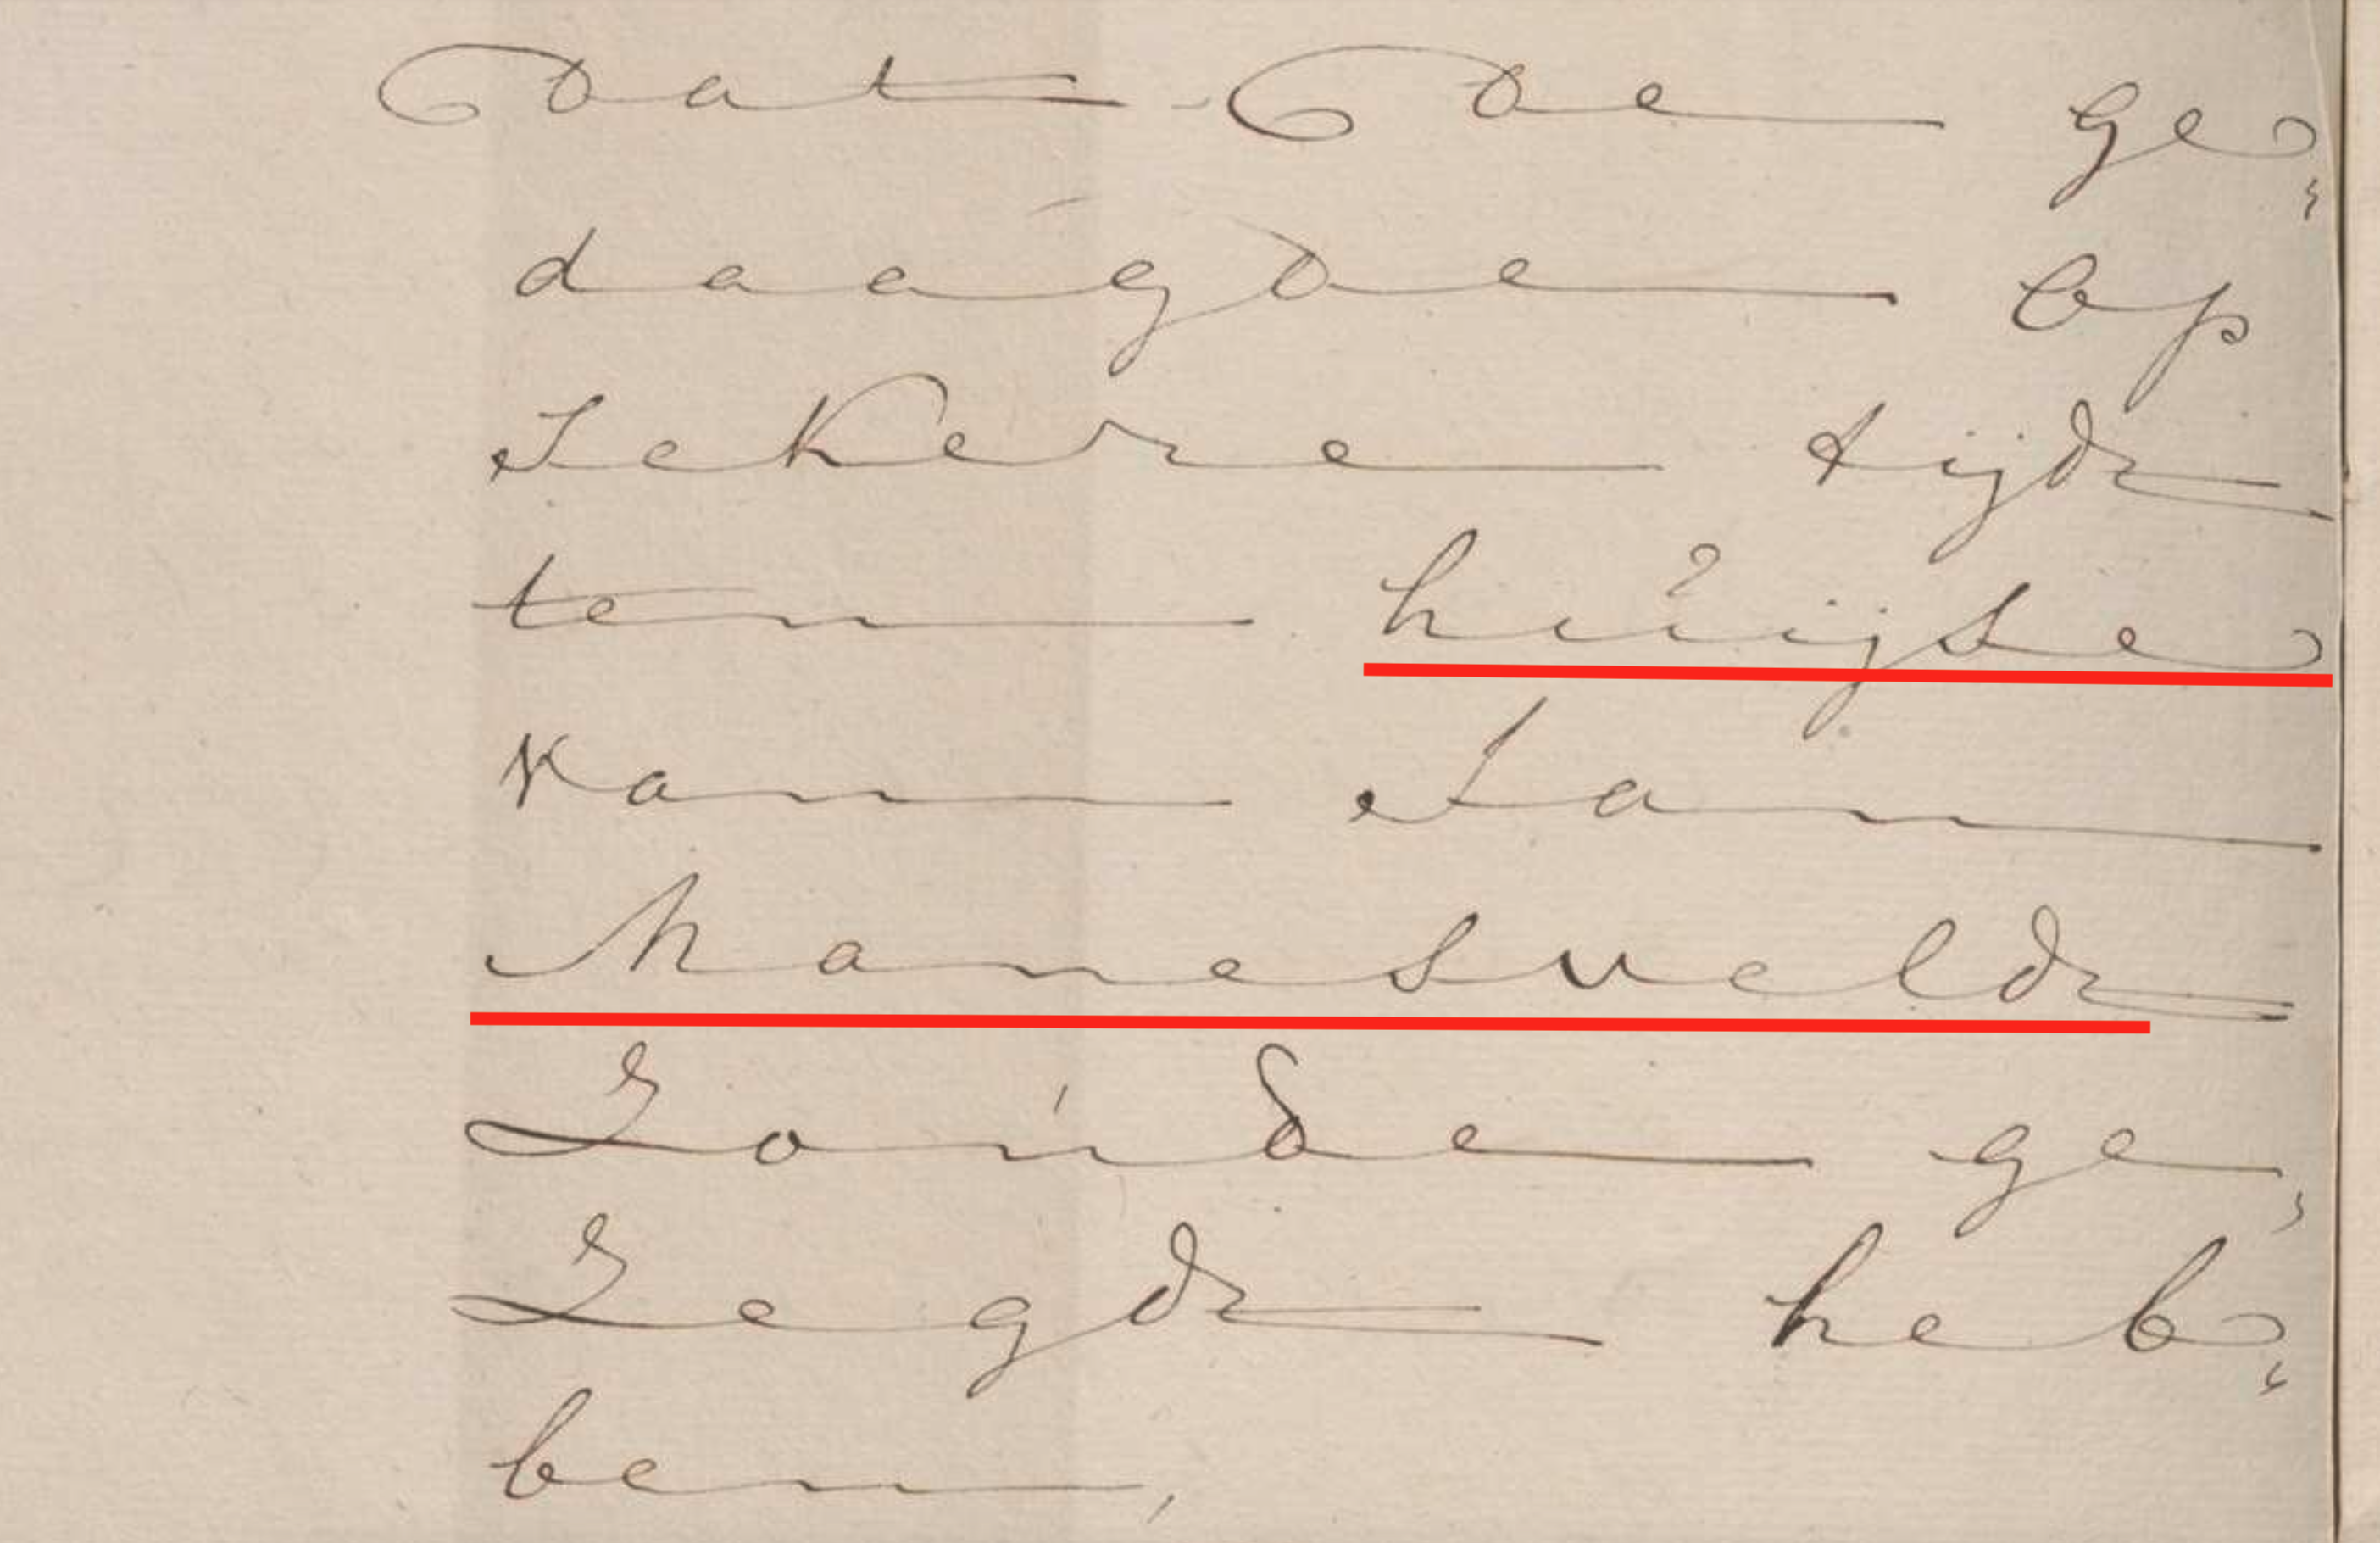 Dat De ge,
daagde Op
Sekere tijdt
ten huijse
Van Jan
Manesveldt
Zoude ge,
Zegdt heb,
ben,